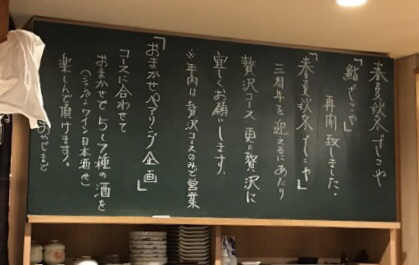 春夏秋冬 すしや
再開致しました。
「春夏秋冬すしや」
三周年を迎えるにあたり
贅沢コース 更に贅沢に
宜しくお願いします。
※年内は贅沢コースのみで営業
「おまかせペアリング企画」
コースに合わせて
おまかせで5〜7種の酒を
ワイン 日本酒
楽しんで頂けます。